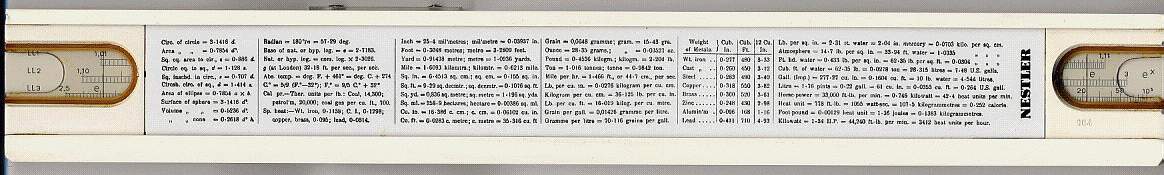 LL1 1,01
LL2 1,10
LL3 2,5 e
Circ. of circle = 3·1416 d.
Area „ „ = 0·7854 d².
Sq. eq. area to cir., s = 0·886 d
Circle eq. to sq., d = 1·128 s.
Sq. inscbd. in circ., s = 0·707 d.
Circsb. circ. of sq., d = 1·414 s
Area of ellipse = 0·7854 a × b
Surface of sphere = 3·1416 d²
Volume „ = 0·5236 d³
„ „ cone = 0·2618 d² h
Radian = 180°/π = 57·29 deg.
Base of nat. or hyp. log. = e = 2·7183.
Nat. or hyp. log. = com. log. × 2·3026.
g (at London) 32·18 ft. per sec., per sec.
Abs. temp. = deg. F. + 461° = deg. C. + 274
C.° = 5/9 (F.°—32°); F.° = 9/5 C.° + 32°
Cal. pr.—Ther. units per lb.: Coal, 14,300;
petrol'm, 20,000; coal gas per cu. ft., 700.
Sp. heat:—Wt. iron, 0·1138; C. I., 0·1298;
copper, brass, 0·095; lead, 0·0314.
Inch = 25·4 mil'metres; mil'metre = 0·03937 in.
Foot = 0·3048 metres; metre = 3·2809 feet.
Yard = 0·91438 metre; metre = 1·0936 yards.
Mile = 1·6093 kilometre; kilomtr. = 0·6213 mile.
Sq. in. = 6·4513 sq. cm.; sq. cm. = 0·155 sq. in.
Sq. ft. = 9·29 sq. decmtr.; sq. decmtr. = 0·1076 sq. ft.
Sq. yd. = 0,836 sq. metre; sq. metre = 1·196 sq. yds.
Sq. ml. = 258·9 hectares; hectare = 0·00386 sq. ml.
Cu. in. = 16·386 c. cm.; c. cm. = 0·06102 cu. in.
Cu. ft. = 0·0283 c. metre; c. metre = 35·316 cu. ft
Grain = 0,0648 gramme; gram. = 15·43 grs.
Ounce = 28·35 grams.; „ = 0·03527 oz.
Pound = 0·4536 kilogm.; kilogm. = 2·204 lb.
Ton = 1·016 tonnes; tonne = 0·9842 ton.
Mile per hr. = 1·466 ft., or 44·7 cm., per sec.
Lb. per cu. in. = 0·0276 kilogram per cu. cm.
Kilogram per cu. cm. = 36·125 lb. per cu. in.
Lb. per cu. ft. = 16·019 kilog. per cu. metre.
Grain per gall. = 0,01426 gramme per litre.
Grammes per litre = 70·116 grains per gall.
Weight of Metals Cub. In. Cub. Ft. 12 Cu. Ins.
Wt. iron .. 0·277 480 3·33
Cast „ .. 0·260 450 3·12
Steel .... 0·283 490 3·40
Copper ... 0·318 550 3·82
Brass .... 0·300 520 3·61
Zinc ..... 0·248 430 2·98
Alumin'm . 0·096 168 1·16
Lead ..... 0·411 710 4·93
Lb. per sq. in. = 2·31 ft. water = 2·04 in. mercury = 0·0703 kilo. per sq. cm.
Atmosphere = 14·7 lb. per sq. in. = 33·94 ft. water = 1·0335 „ „ „
Ft. hd. water = 0·433 lb. per sq. in. = 62·35 lb. per sq. ft. = 0·0304 „ „ „
Cub. ft. of water = 62·35 lb. = 28·315 litres = 7·48 U.S. galls.
Gall. (Imp.) = 277·27 cu. in. = 0·1604 cu. ft. = 10 lb. water = 4·544 litres.
Litre = 1·76 pints = 0·22 gall. = 61 cu. in. = 0·0353 cu. ft. = 0·264 U.S. gall.
Horse power = 33,000 ft.-lb. per min. = 0·746 kilowatt = 42·4 heat units per min.
Heat unit = 778 ft. lb. = 1055 watt-sec. = 107·5 kilogrammetres = 0·252 calorie.
Foot pound = 0·00129 heat unit = 1·36 joules = 0·1383 kilogrammetres.
Kilowatt = 1·34 H.P. = 44,240 ft.-lb. per min. = 3412 heat units per hour.
NESTLER
e 3 eˣ
20 5